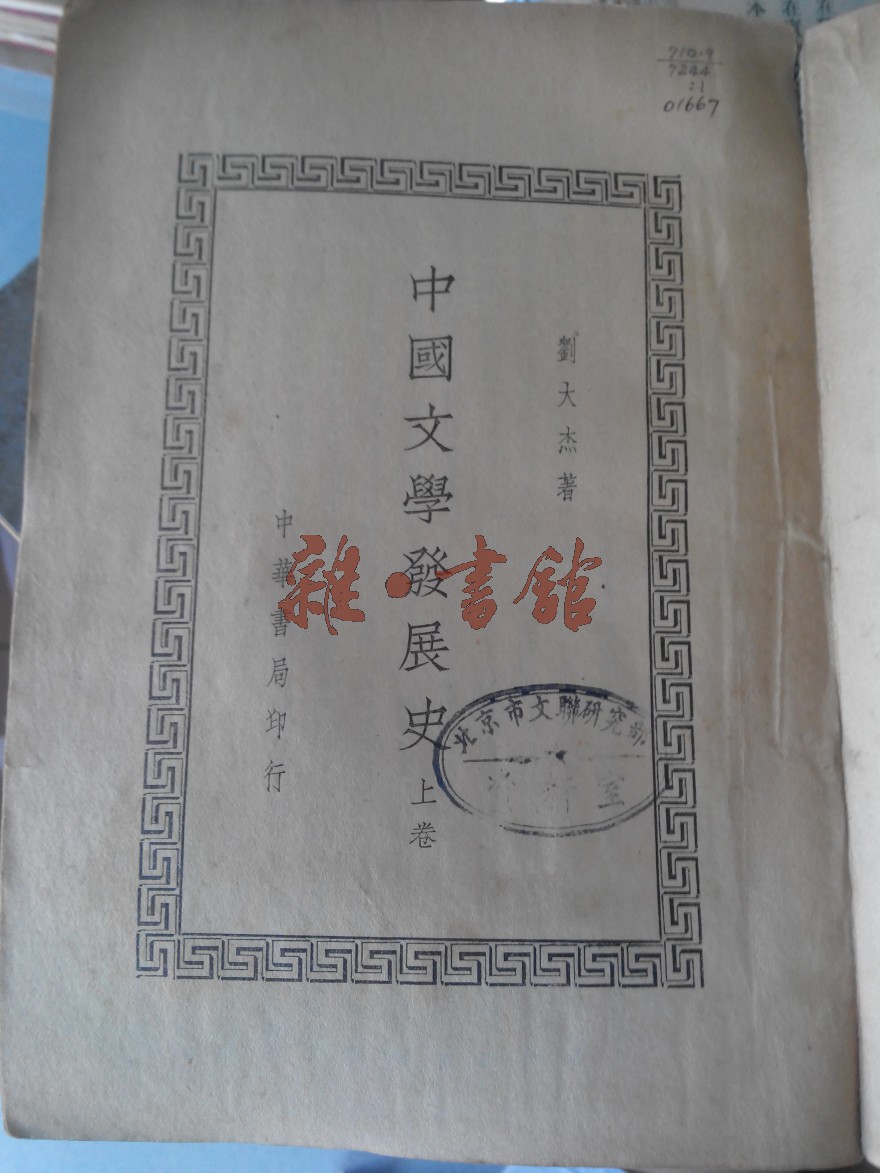 710.9
7244
:1
01667
劉大杰著
中國文學發展史 上卷
中華書局印行
雜·書館
北京市文聯研究部
資料室